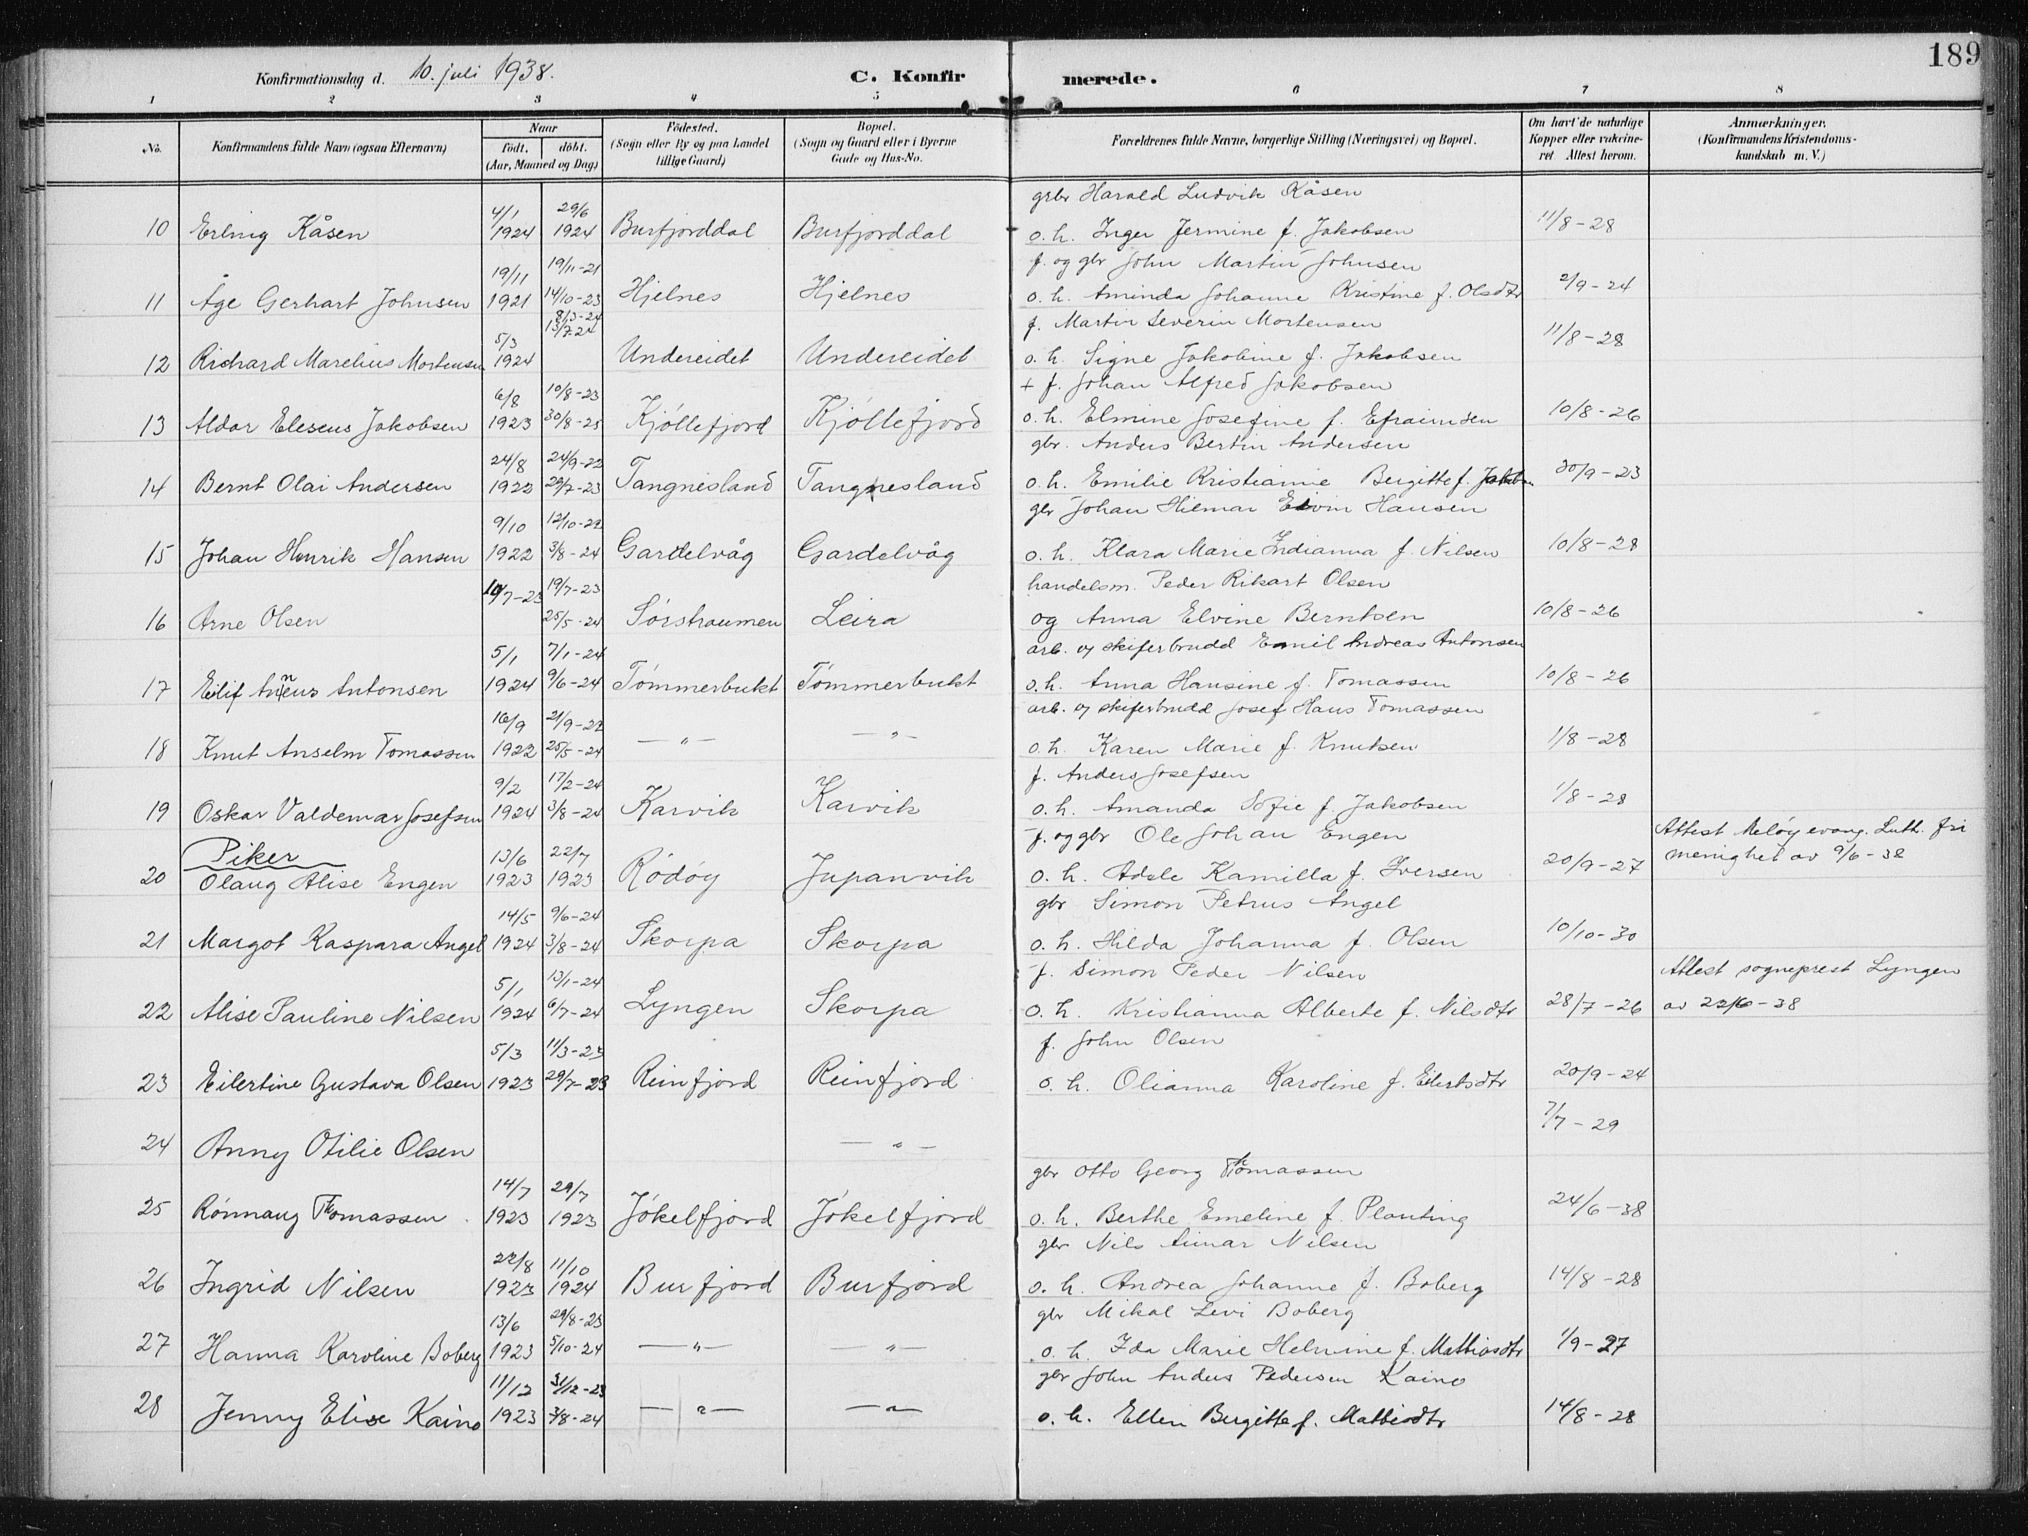 189
Konfirmationsdag d. 10. juli 1938. C. Konfirmerede.
1 2 3 4 5 6 7 8
No. Konfirmandens fulde Navn (ogsaa Efternavn) Naar født. døbt. (Aar, Maaned og Dag) Fødested. (Sogn eller By og paa Landet tillige Gaard) Bopæl. (Sogn og Gaard eller i Byerne Gade og Hus-No. Forældrenes fulde Navne, borgerlige Stilling (Næringsvei) og Bopæl. Om havt de naturlige Kopper eller vakcineret Attest herom. Anmærkninger. (Konfirmandens Kristendomskundskab m. V.)
4/1 29/6 grbr Harald Ludvik Kåsen
10 Erling Kåsen 1924 1924 Burfjorddal Burfjorddal o. h. Inger Jermine f. Jakobsen 11/8-28
19/11 19/11-21 f. og gbr John Martin Johnsen
11 Åge Gerhart Johnsen 1921 14/10-23 Hjelnes Hjelnes o. h. Aminda Johanne Kristine f. Olsdtr 2/9-24
8/3-24
5/3 13/7-24 f. Martin Severin Mortensen
12 Richard Marelius Mortensen 1924 Undereidet Undereidet o. h. Signe Jakobine f. Jakobsen 11/8-28
6/8 10/8-23 + f. Johan Alfred Jakobsen
13 Aldor Eleseus Jakobsen 1923 30/8-25 Kjøllefjord Kjøllefjord o. h. Elmine Josefine f. Efraimsen 10/8-26
24/8 24/9-22 gbr. Anders Bertin Andersen
14 Bernt Olai Andersen 1922 29/7-23 Tangnesland Tangnesland o. h. Emilie Kristianne Bergitte f. 30/9-23
9/10 12/10-22 gbr Johan Hilmar Eivin Hansen
15 Johan Henrik Hansen 1922 3/8-24 Gardelvåg Gardelvåg o. h. Klara Marie Indianna f. Nilsen 10/8-28
10/7-23 19/7-23 handelsm. Peder Rikart Olsen
16 Arne Olsen 25/5-24 Sørstraumen Leira og Anna Elvine Berntsen 10/8-26
5/1 7/1-24 arb. og skiferbrudd Emil Andreas Antonsen
17 Eilif Antonsen 1924 9/6-24 Tømmerbukt Tømmerbukt o. h. Anna Hansine f. Tomassen 10/8-26
16/9 21/9-22 arb. og skiferbrudd Josef Hans Tomassen
18 Knut Anselm Tomassen 1922 25/5-24 — " — — " — o. h. Karen Marie f. Knutsen 1/8-28
9/2 17/2-24 f. Anders Josefsen
19 Oskar Valdemar Josefsen 1924 3/8-24 Karvik Karvik o. h. Amanda Sofie f. Jakobsen 1/8-28
Piker 13/6 22/7 f. og gbr Ole Johan Engen Attest Meløy evang. Luth. fri
20 Olaug Alise Engen 1923 1923 Rødøy Jupanvik o. h. Adele Kamilla f. Iversen 20/9-27 menighet av 9/6-38
14/5 9/6-24 gbr Simon Petrus Angel
21 Margot Kaspara Angel 1924 3/8-24 Skorpa Skorpa o. h. Hilda Johanna f. Olsen 10/10-30
5/1 13/1-24 f. Simon Peder Nilsen Attest sogneprest Lyngen
22 Alise Pauline Nilsen 1924 6/7-24 Lyngen Skorpa o. h. Kristianna Alberte f. Nilsdtr 28/7-26 av 22/6-38
5/3 11/3-23 f. John Olsen
23 Eilertine Gustava Olsen 1923 29/7-23 Reinfjord Reinfjord o. h. Olianna Karoline f. Eilertsdtr 20/9-24
24 Anny Otilie Olsen — " — 7/7-29
14/7 29/7 gbr Otto Georg Thomassen
25 Rønnaug Thomassen 1923 1923 Jøkelfjord Jøkelfjord o. h. Berthe Emeline f. Planting 24/6-38
22/8 11/10 gbr Nils Eimar Nilsen
26 Ingrid Nilsen 1923 1924 Burfjord Burfjord o. h. Andrea Johanne f. Boberg 14/8-28
13/6 29/8-23 gbr Mikal Levi Boberg
27 Hanna Karoline Boberg 1923 5/10-24 — " — — " — o. h. Ida Marie Helmine f. Mathisdtr 1/9-27
11/12 31/12-23 gbr John Anders Pedersen Kaino
28 Jenny Elise Kaino 1923 3/8-24 — " — — " — o. h. Ellen Birgitte f. Mathisdtr 14/8-28